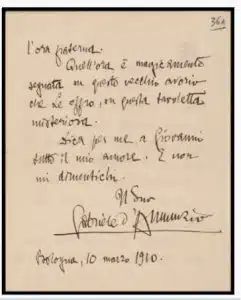 36a
l'ora fraterna.
Quell'ora è magicamente
segnata in questo vecchio avorio
che Le offro, in questa tavoletta
misteriosa.
Dica per me a Giovanni
tutto il mio amore. E non
mi dimentichi.
Il Suo
Gabriele d'Annunzio
Bologna, 10 marzo 1910.